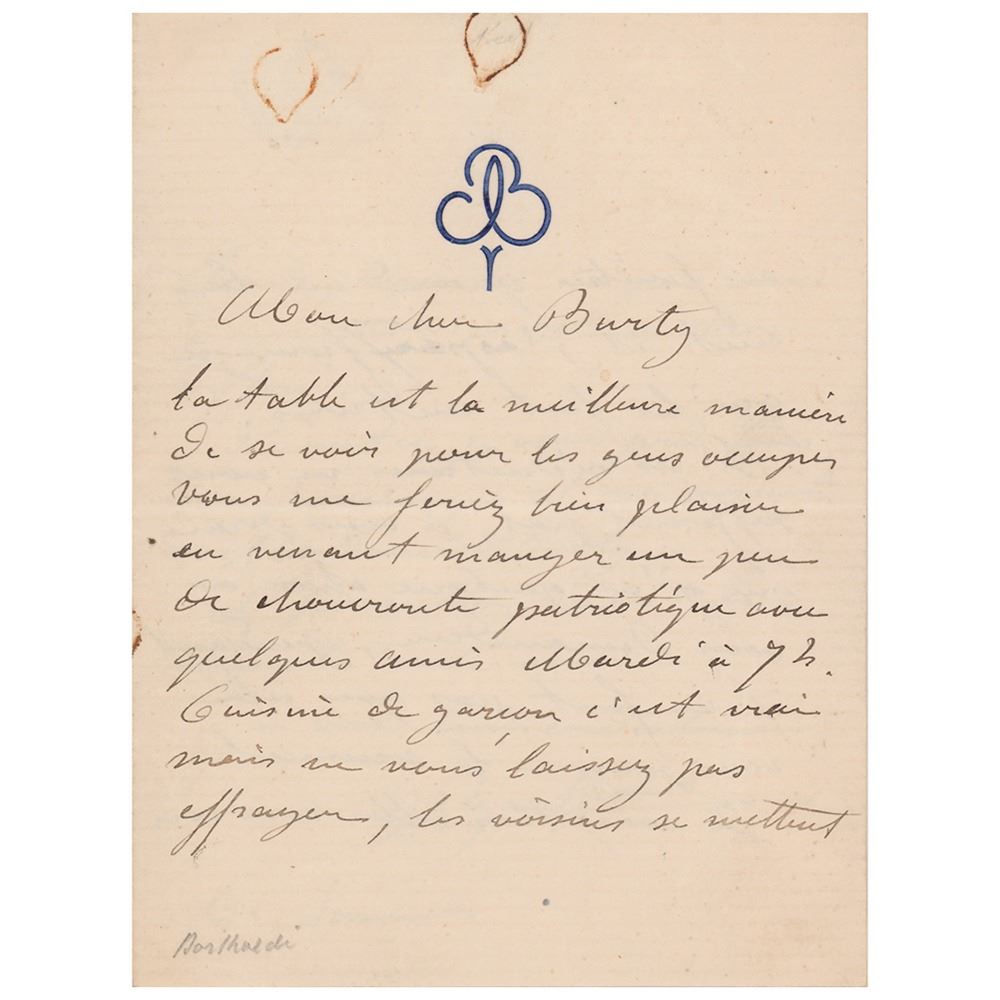 Mon cher Burty
la table est la meilleure manière
de se voir pour les gens occupés
vous me feriez bien plaisir
en venant manger un peu
de choucroute patriotique avec
quelques amis Mardi à 7 h.
Cuisine de garçon c'est vrai
mais ne vous laissez pas
effrayer, les voisins se mettent
Bartholdi